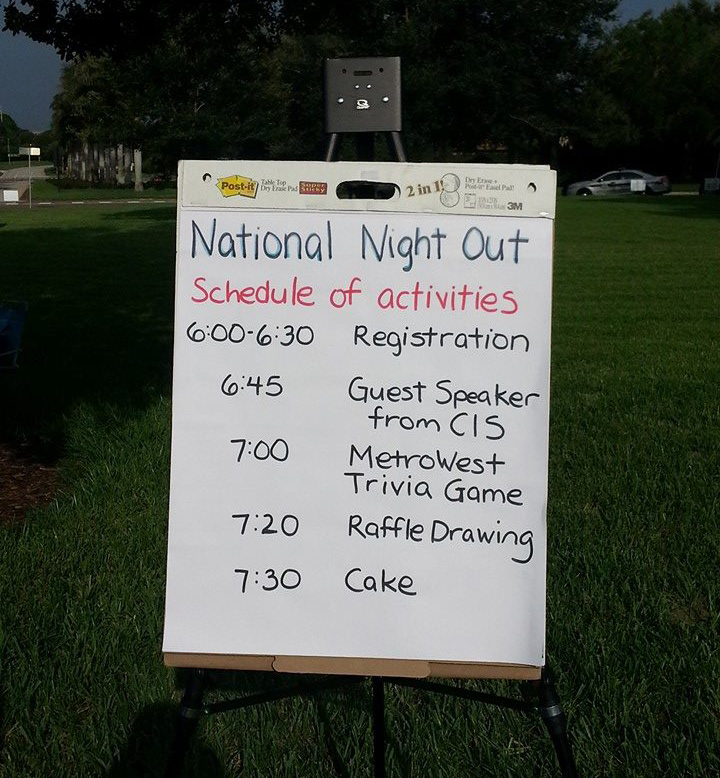 Post-it
Table Top
Dry Erase Pad
Super
Sticky
2 in 1!
Dry Erase +
Post-it® Easel Pad!
3M
National Night Out
Schedule of activities
6:00-6:30 Registration
6:45 Guest Speaker
from CIS
7:00 MetroWest
Trivia Game
7:20 Raffle Drawing
7:30 Cake